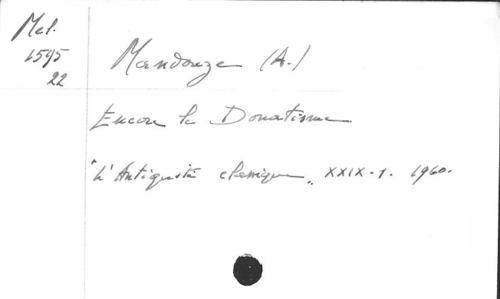 Mel.
1595
22
Mandouze (A.)
Encore le Donatisme
"L'Antiquité classique„ XXIX-1. 1960.